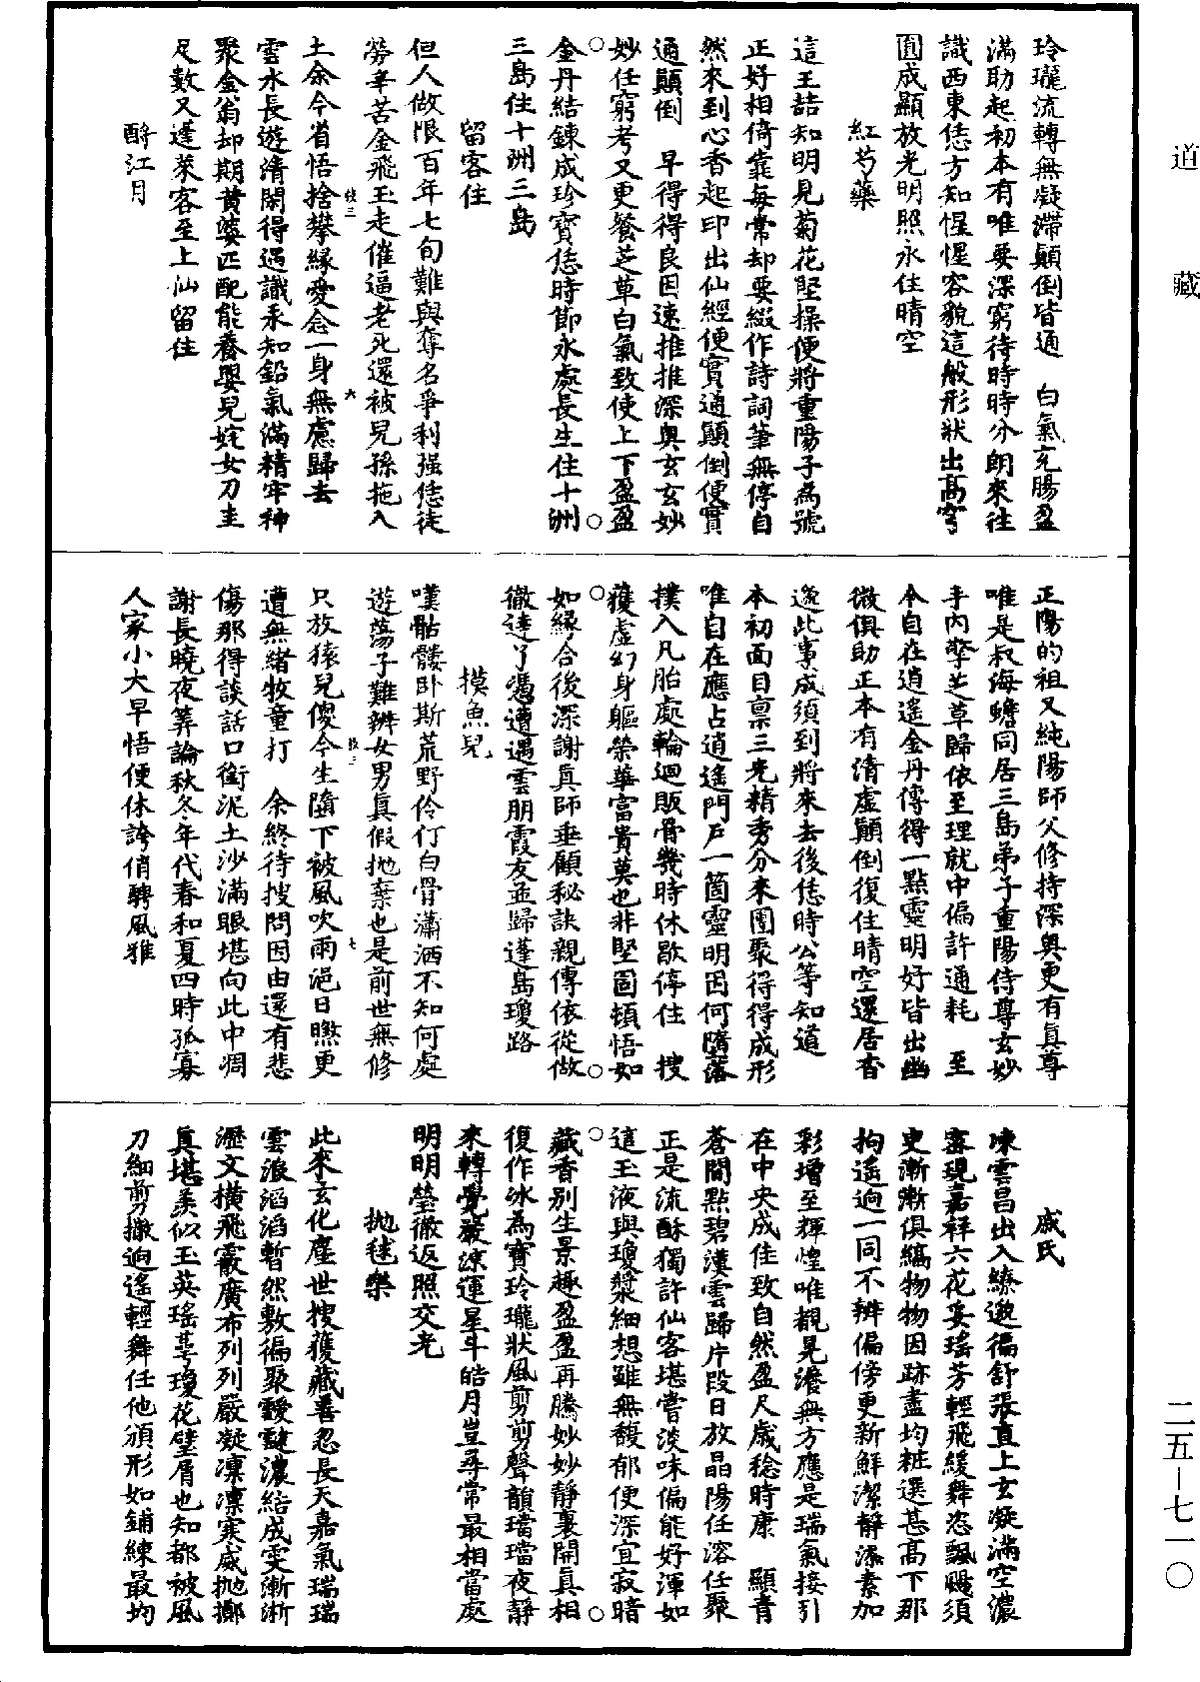 道藏
玲瓏流轉無凝滯顛倒皆通　白氣充腸盈
滿助起初本有唯要深窮待時時分朗來往
識西東恁方知惺惺容貌這般形狀出高穹
圓成顯放光明照永住晴空
紅芍藥
這王喆知明見菊花堅操便將重陽子為號
正好相倚靠每常却要綴作詩詞筆無停自
然來到心香起印出仙經便實通顛倒便實
通顛倒　早得得良因速推推深奧玄玄妙
妙任窮考又更餐芝草白氣致使上下盈盈
金丹結鍊成珍寶恁時節永處長生住十洲
三島住十洲三島
留客住
但人做限百年七旬難與奪名爭利强恁徒
勞辛苦金飛玉走催逼老死還被兒孫拖入
土余今省悟捨攀緣愛念一身無慮歸去
雲水長遊清閑得遇識汞知鉛氣滿精牢神
聚金翁却期黄婆匹配能養嬰兒姹女刀圭
足數又逢萊客至上仙留住
酹江月
正陽的祖又純陽師父修持深奥更有真尊
唯是叔海蟾同居三島弟子重陽侍尊玄妙
手内擎芝草歸依至理就中偏許通耗　至
本自在逍遙金丹傳得一點靈明好皆出幽
微俱助正本有清虚顛倒復住晴空還居杳
邈此事成須到將來去後恁時公等知道
本初面目禀三光精秀分來團聚得得成形
唯自在應占逍遙門戶一箇靈明因何墮落
撲入凡胎處輪迴販骨幾時休歇停住　搜
獲虛幻身軀榮華富貴莫也非堅固頓悟如
如緣合後深謝真師垂顧秘訣親傳依從做
徹達了憑遭遇雲朋霞友並歸蓬島瓊路
摸魚兒
嘆骷髏卧斯荒野伶仃白骨瀟洒不知何處
遊蕩子難辨女男真假抛棄也是前世無修
只放猿兒傻今生墮下被風吹雨浥日㬠更
遭無緒牧童打　余終待搜問因由還有悲
傷那得談話口銜泥土沙滿眼堪向此中凋
謝長曉夜筭論秋冬年代春和夏四時孤寡
人家小大早悟便休誇俏騁風雅
戚氏
凍雲昌出入繚邈徧舒張直上玄凝滿空濃
密現嘉祥六花妥瑤芳輕飛緩舞恣飄颺須
史漸漸俱縞物物因跡盡均粧選甚高下那
拘遙逈一同不辨偏傍更新鮮潔靜添素加
彩增至輝煌唯覩見澹無方應是瑞氣接引
在中央成佳致自然盈尺歲稔時康　顯青
蒼間點碧漢雲歸片段日放晶陽任溶任聚
正是流酥獨許仙客堪嘗淡味偏能好渾如
這玉液與瓊漿細想雖無馥郁便深宜寂暗
藏香别生景趣盈盈再騰妙妙靜裏開真相
復作冰為寶玲瓏狀風剪剪聲韻璫璫夜靜
來轉覺嚴涼運星斗皓月豈尋常最相當處
明明瑩徹返照交光
抛毬樂
此來玄化塵世搜獲藏善忍長天嘉氣瑞瑞
雲浪滔滔暫然敷徧聚靉靆濃結成雯漸淅
瀝文横飛霰廣布列列嚴凝凜凜寒威抛擲
真堪羨似玉英瑤萼瓊花璧屑也知都被風
刀細剪撒逈遙輕舞任他頒形如鋪練最均
二五—七一〇